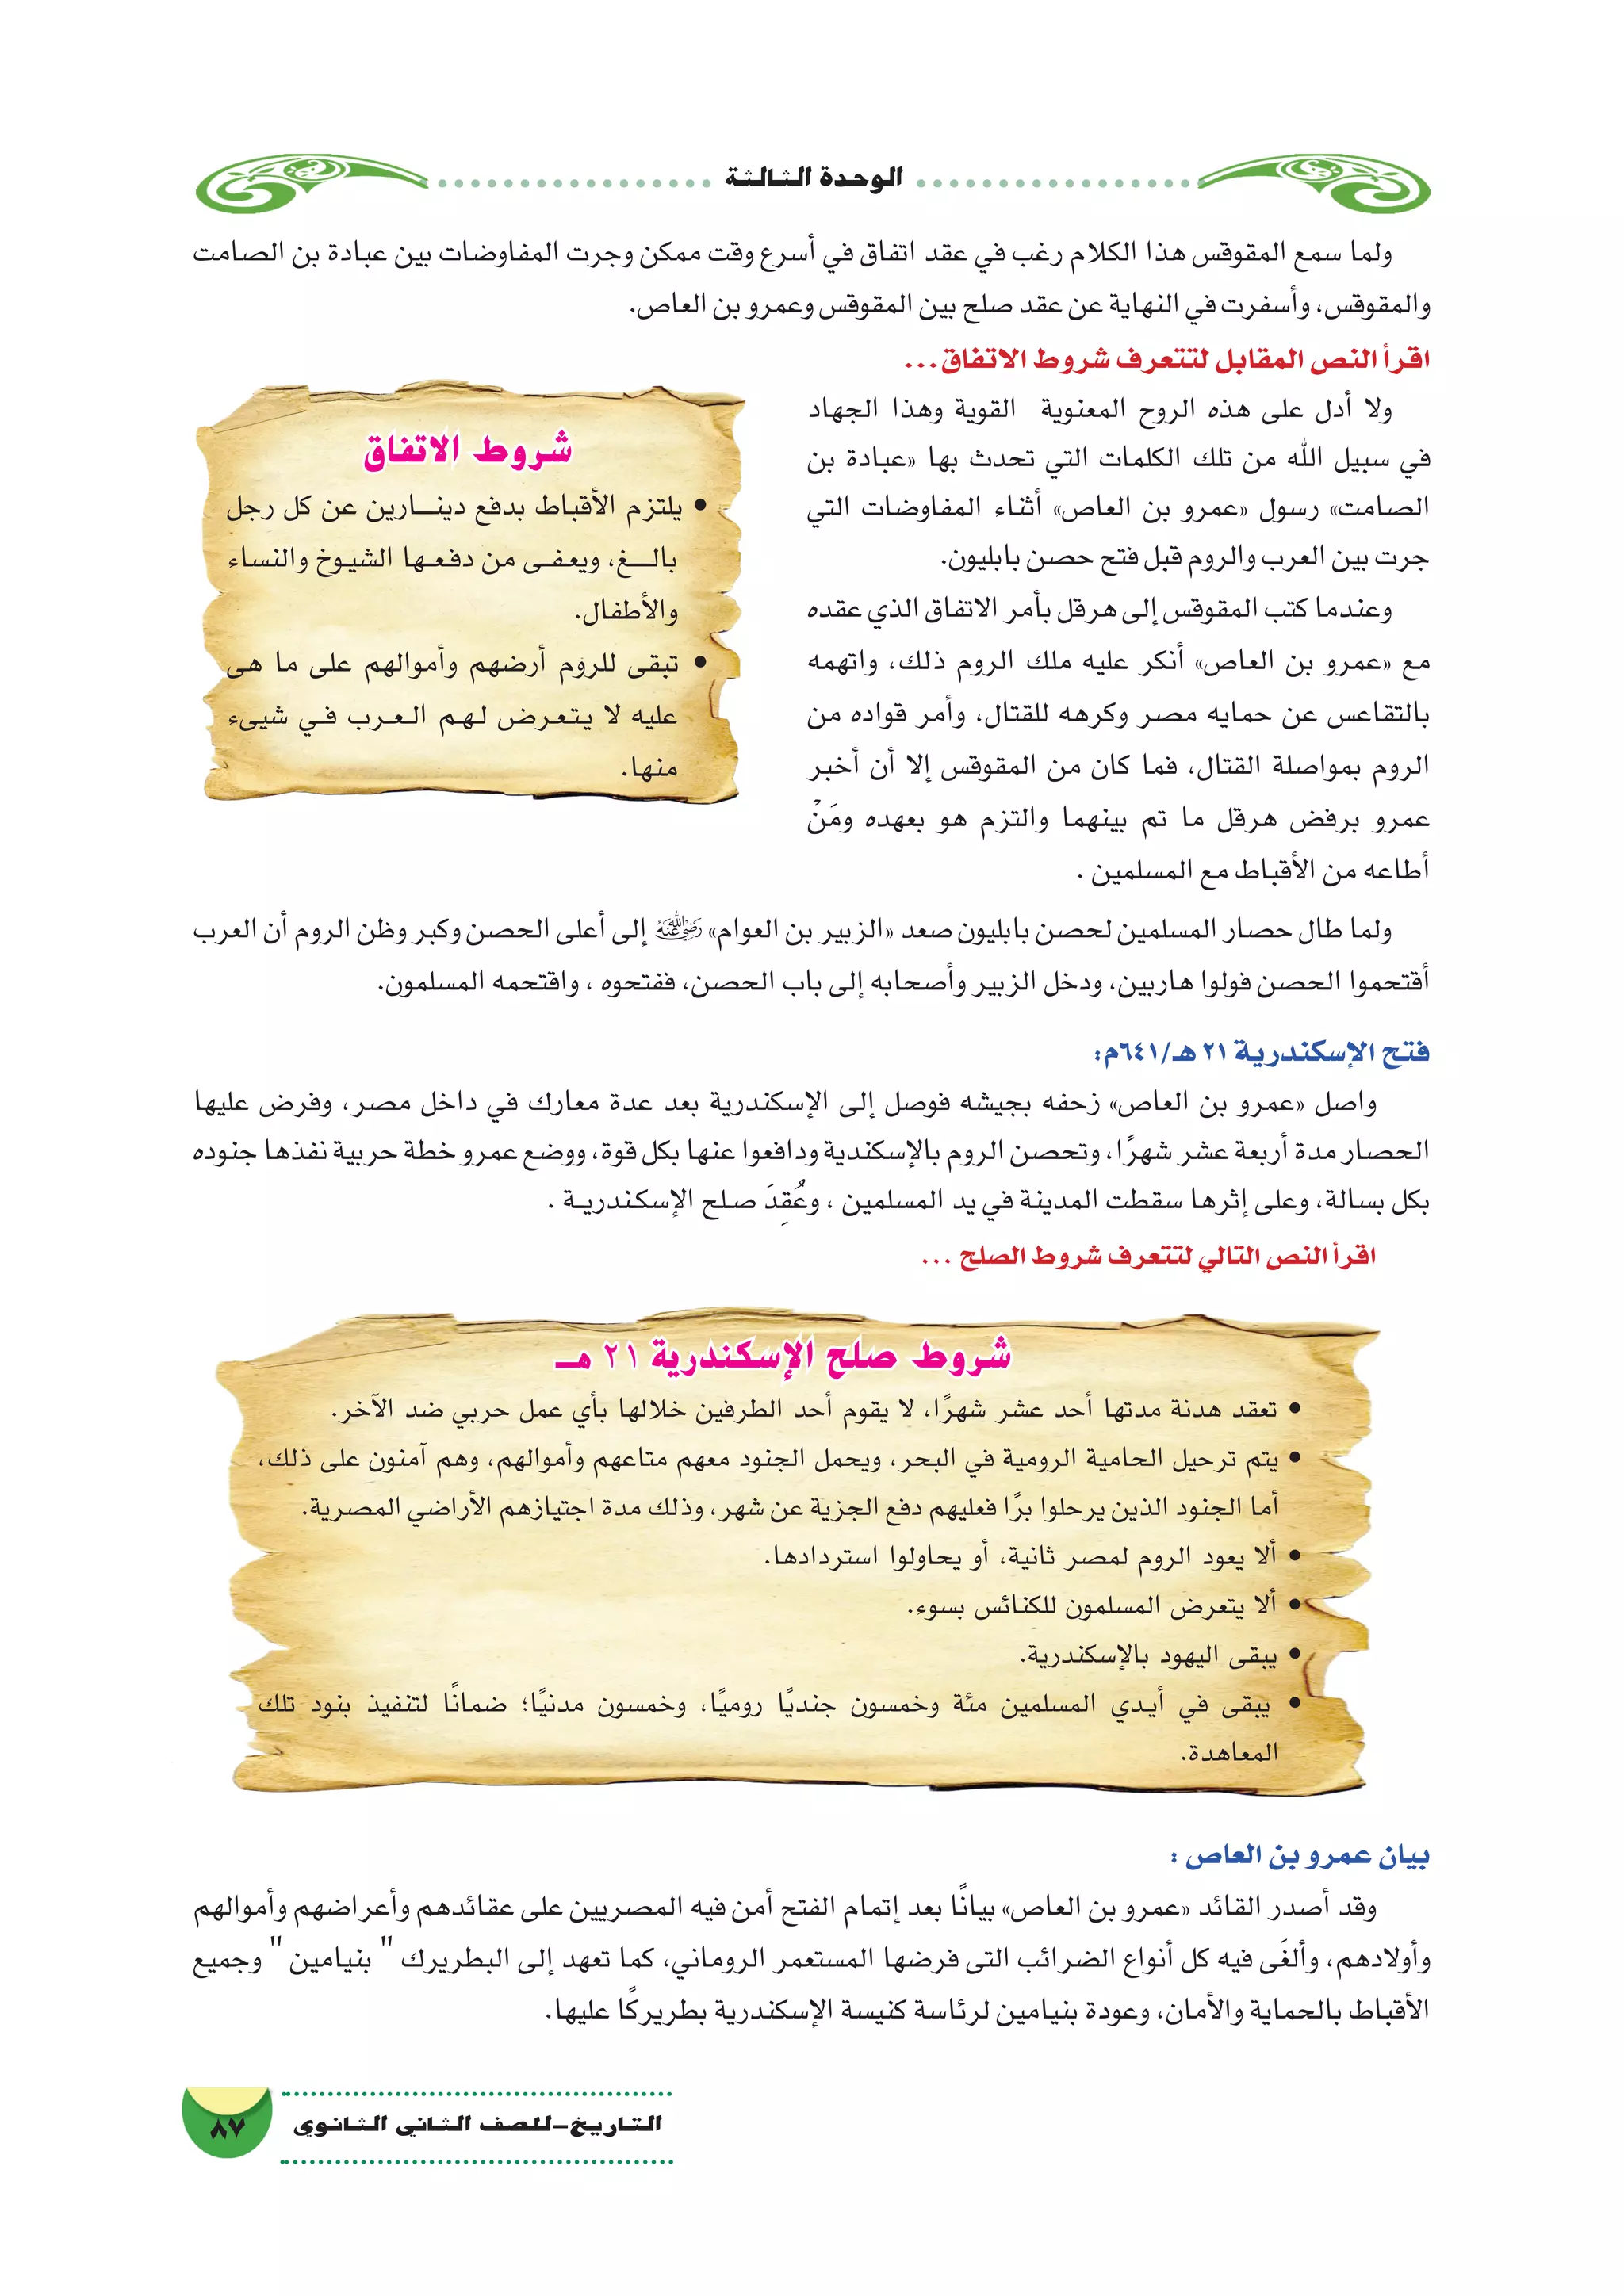 الوحدة الثالثة
ولما سمع المقوقس هذا الكلام رغب في عقد اتفاق في أسرع وقت ممكن وجرت المفاوضات بين عبادة بن الصامت
والمقوقس، وأسفرت في النهاية عن عقد صلح بين المقوقس وعمرو بن العاص.
اقرأ النص المقابل لتتعرف شروط الاتفاق...
ولا أدل على هذه الروح المعنوية القوية وهذا الجهاد
في سبيل الله من تلك الكلمات التي تحدث بها «عبادة بن
الصامت» رسول «عمرو بن العاص» أثناء المفاوضات التي
جرت بين العرب والروم قبل فتح حصن بابليون.
وعندما كتب المقوقس إلى هرقل بأمر الاتفاق الذي عقده
مع «عمرو بن العاص» أنكر عليه ملك الروم ذلك، واتهمه
بالتقاعس عن حمايه مصر وكرهه للقتال، وأمر قواده من
الروم بمواصلة القتال، فما كان من المقوقس إلا أن أخبر
عمرو برفض هرقل ما تم بينهما والتزم هو بعهده ومَنْ
أطاعه من الأقباط مع المسلمين .
شروط الاتفاق
• يلتزم الأقباط بدفع دينـــارين عن كل رجل
بالـــغ، ويعفـى من دفعـها الشيـوخ والنساء
والأطفال.
• تبقى للروم أرضهم وأموالهم على ما هى
عليه لا يـتعـرض لـهـم الـعـرب فـي شيىء
منها.
ولما طال حصار المسلمين لحصن بابليون صعد «الزبير بن العوام» ﷺ إلى أعلى الحصن وكبر وظن الروم أن العرب
أقتحموا الحصن فولوا هاربين، ودخل الزبير وأصحابه إلى باب الحصن، ففتحوه ، واقتحمه المسلمون.
فتح الإسكندرية ٢١ هـ/٦٤١م:
واصل «عمرو بن العاص» زحفه بجيشه فوصل إلى الإسكندرية بعد عدة معارك في داخل مصر، وفرض عليها
الحصار مدة أربعة عشر شهرًا، وتحصن الروم بالإسكندية ودافعوا عنها بكل قوة، ووضع عمرو خطة حربية نفذها جنوده
بكل بسالة، وعلى إثرها سقطت المدينة في يد المسلمين ، وعُقِدَ صـلح الإسكـندريـة .
اقرأ النص التالي لتتعرف شروط الصلح ...
شروط صلح الإسكندرية ٢١ هـ
• تعقد هدنة مدتها أحد عشر شهرًا، لا يقوم أحد الطرفين خلالها بأي عمل حربي ضد الآخر.
• يتم ترحيل الحامية الرومية في البحر، ويحمل الجنود معهم متاعهم وأموالهم، وهم آمنون على ذلك،
أما الجنود الذين يرحلوا برًا فعليهم دفع الجزية عن شهر، وذلك مدة اجتيازهم الأراضي المصرية.
• ألا يعود الروم لمصر ثانية، أو يحاولوا استردادها.
• ألا يتعرض المسلمون للكنائس بسوء.
• يبقى اليهود بالإسكندرية.
• يبقى في أيدي المسلمين مئة وخمسون جنديًا روميًا، وخمسون مدنيًا؛ ضمانًا لتنفيذ بنود تلك
المعاهدة.
بيان عمرو بن العاص :
وقد أصدر القائد «عمرو بن العاص» بيانًا بعد إتمام الفتح أمن فيه المصريين على عقائدهم وأعراضهم وأموالهم
وأولادهم، وألغَى فيه كل أنواع الضرائب التى فرضها المستعمر الروماني، كما تعهد إلى البطريرك " بنيامين " وجميع
الأقباط بالحماية والأمان، وعودة بنيامين لرئاسة كنيسة الإسكندرية بطريركًا عليها.
التاريخ-للصف الثاني الثانوى
٨٧